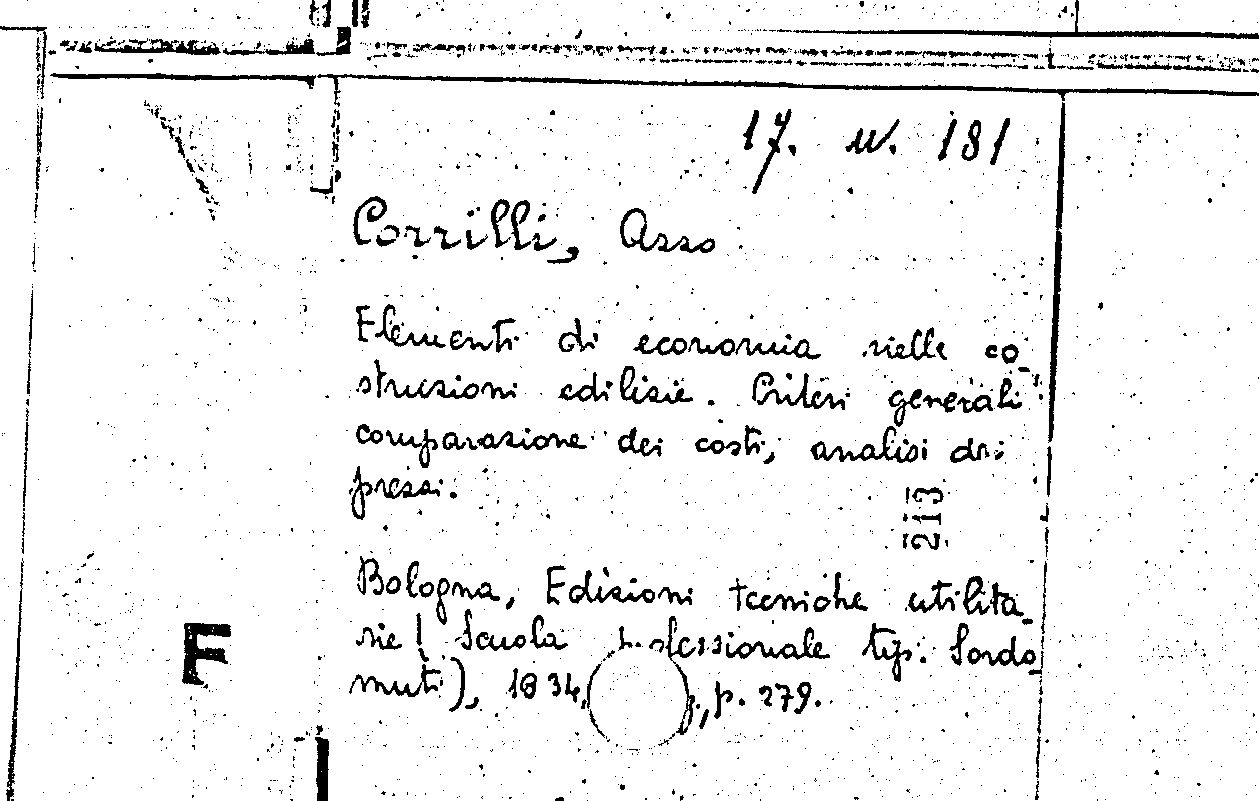 17. W. 181
Corrilli, Asso
Elementi di economia nelle co-
struzioni edilizie. Criteri generali
comparazione dei costi, analisi dei
prezzi.
213
Bologna, Edizioni tecniche utilita-
rie (Scuola professionale tip. Sordo-
F
muti), 1934, p. 279.